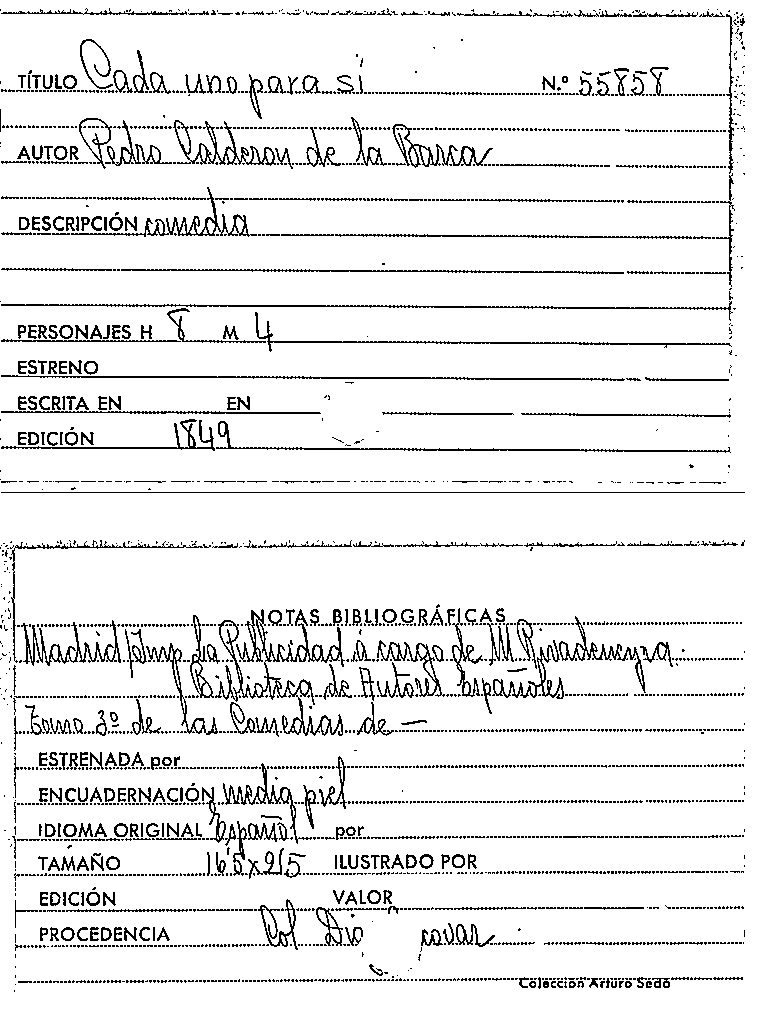 TÍTULO Cada uno para sí N.º 55858
AUTOR Pedro Calderon de la Barca
DESCRIPCIÓN comedia
PERSONAJES H 8 M 4
ESTRENO
ESCRITA EN EN
EDICIÓN 1849
NOTAS BIBLIOGRÁFICAS
Madrid Imp La Publicidad á cargo de M Rivadeneyra.
Biblioteca de Autores Españoles
Tomo 3º de las Comedias de —
ESTRENADA por
ENCUADERNACIÓN media piel
IDIOMA ORIGINAL Español por
TAMAÑO ILUSTRADO POR
EDICIÓN VALOR
PROCEDENCIA Col
Colección Arturo Sedó